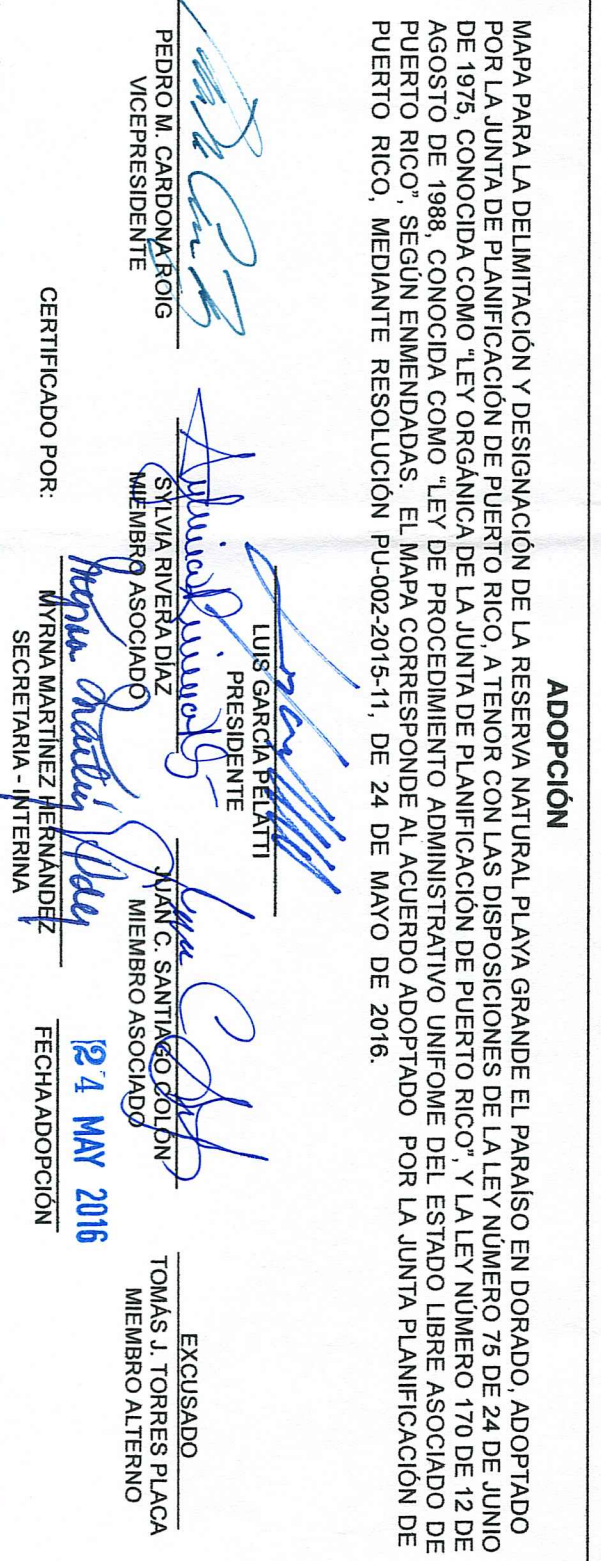 ADOPCIÓN
MAPA PARA LA DELIMITACIÓN Y DESIGNACIÓN DE LA RESERVA NATURAL PLAYA GRANDE EL PARAÍSO EN DORADO, ADOPTADO
POR LA JUNTA DE PLANIFICACIÓN DE PUERTO RICO, A TENOR CON LAS DISPOSICIONES DE LA LEY NÚMERO 75 DE 24 DE JUNIO
DE 1975, CONOCIDA COMO "LEY ORGÁNICA DE LA JUNTA DE PLANIFICACIÓN DE PUERTO RICO", Y LA LEY NÚMERO 170 DE 12 DE
AGOSTO DE 1988, CONOCIDA COMO "LEY DE PROCEDIMIENTO ADMINISTRATIVO UNIFOME DEL ESTADO LIBRE ASOCIADO DE
PUERTO RICO", SEGÚN ENMENDADAS. EL MAPA CORRESPONDE AL ACUERDO ADOPTADO POR LA JUNTA PLANIFICACIÓN DE
PUERTO RICO, MEDIANTE RESOLUCIÓN PU-002-2015-11, DE 24 DE MAYO DE 2016.
LUIS GARCÍA PELATTI
PRESIDENTE
PEDRO M. CARDONA ROIG
VICEPRESIDENTE
SYLVIA RIVERA DÍAZ
MIEMBRO ASOCIADO
JUAN C. SANTIAGO COLÓN
MIEMBRO ASOCIADO
EXCUSADO
TOMÁS J. TORRES PLACA
MIEMBRO ALTERNO
CERTIFICADO POR:
MYRNA MARTÍNEZ HERNÁNDEZ
SECRETARIA - INTERINA
24 MAY 2016
FECHA ADOPCIÓN